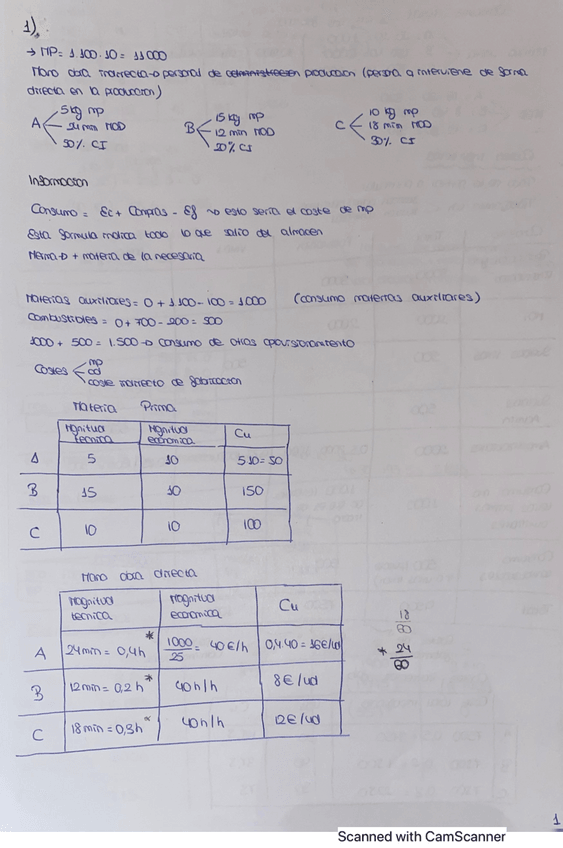 1).
→ MP = 1.100 · 10 = 11000
Mano obra indirecta → personal de produccion (persona q interviene de forma
directa en la produccion)
A 5 kg mp
24 min MOD
50% CI
B 15 kg mp
12 min MOD
20% CI
C 10 kg mp
18 min MOD
30% CI
Informacion
Consumo = Ei + Compras - Ef → esto seria el coste de mp
Esta formula indica todo lo que salio del almacen
Merma → + materia de la necesaria
Materias auxiliares = 0 + 1.100 - 100 = 1000 (consumo materias auxiliares)
Combustibles = 0 + 700 - 200 = 500
1000 + 500 = 1.500 → consumo de otros aprovisionamiento
Costes mp
od
coste indirecto de fabricacion
Materia Prima
Mgnitud tecnica Mgnitud economica Cu
A 5 10 5·10 = 50
B 15 10 150
C 10 10 100
Mano obra directa
Magnitud tecnica Magnitud economica Cu
A 24min = 0,4h * 1000/25 = 40€/h 0,4·40 = 16€/ud
B 12min = 0,2h * 40h/h 8€/ud
C 18min = 0,3h * 40h/h 12€/ud
18/60
* 24/60
1
Scanned with CamScanner